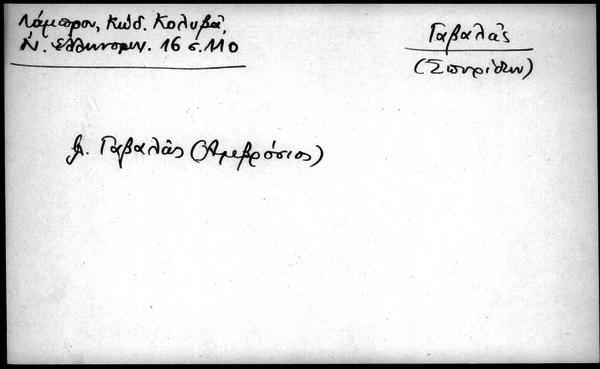 Λάμπρου, Κώδ. Κολυβᾶ,
Ν. Ἑλληνομν. 16 σ. 110
Γαβαλᾶς
(Σπυρίδων)
βλ. Γαβαλᾶς (Ἀμβρόσιος)